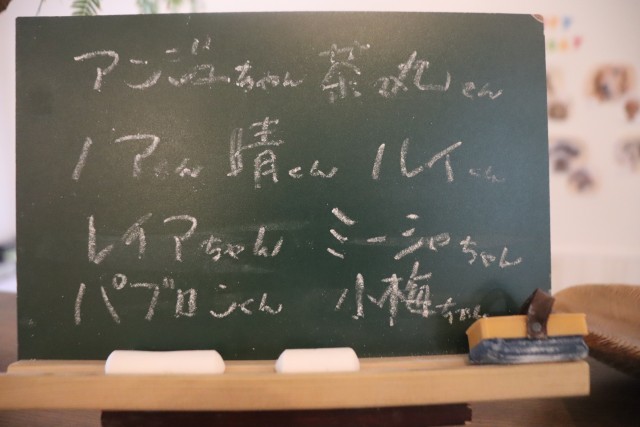 アンジュちゃん 茶々丸くん
ノアくん 晴くん ルイくん
レイアちゃん ミーシャちゃん
パブロンくん 小梅ちゃん